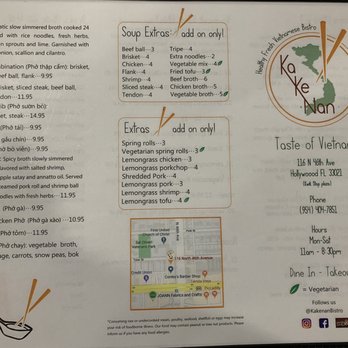 atic slow simmered broth cooked 24
d with rice noodles, fresh herbs,
n sprouts and lime. Garnished with
onion, scallion and cilantro.
mbination (Phở thập cẩm): brisket,
beef ball, flank ··9.95
brisket, sliced steak, beef ball,
on···11.95
ib (Phở sườn bò):
et, steak···14.95
(Phở tái) ···9.95
gầu chín) ···9.95
hở bò viên) ···9.95
: Spicy broth slowly simmered
flavored with salted shrimp,
pple satay and annatto oil. Served
steamed pork roll and shrimp ball
noodles with fresh herbs ···11.95
(Phở gà) ···9.95
cken Phở (Phở gà xào) ···10.95
(Phở tôm) ···11.95
Phở chay): vegetable broth,
age, carrots, snow peas, bok
Soup Extras: add on only!
Beef ball···3
Brisket···4
Chicken···4
Flank···4
Shrimp···4
Sliced steak···4
Tendon···4
Tripe···4
Extra noodles···2
Vegetable mix···4
Fried tofu···3
Beef broth···5
Chicken broth···5
Vegetable broth···5
Extras add on only!
Spring rolls···3
Vegetarian spring rolls···3
Lemongrass chicken···3
Lemongrass porkchop···4
Shredded Pork···4
Lemongrass pork···3
Lemongrass shrimp···4
Lemongrass tofu···4
First United
Church of Christ
Credit Union
116 North 46th Avenue
JOANN Fabrics and Crafts
*Consuming raw or undercooked meats, poultry, seafood, shellfish or eggs may increase
your risk of foodborne illness. Our food may contain peanut or tree nut products. Please
inform us if you have any food allergies.
Healthy Fresh Vietnamese Bistro
Ka
Ke
Nan
Taste of Vietnam
116 N 46th Ave
Hollywoood FL 33021
Phone
(954) 404-7851
Hours
Mon-Sat
11am - 8:30pm
Dine In - Takeou
= Vegetarian
Follows us
@KakenanBistro